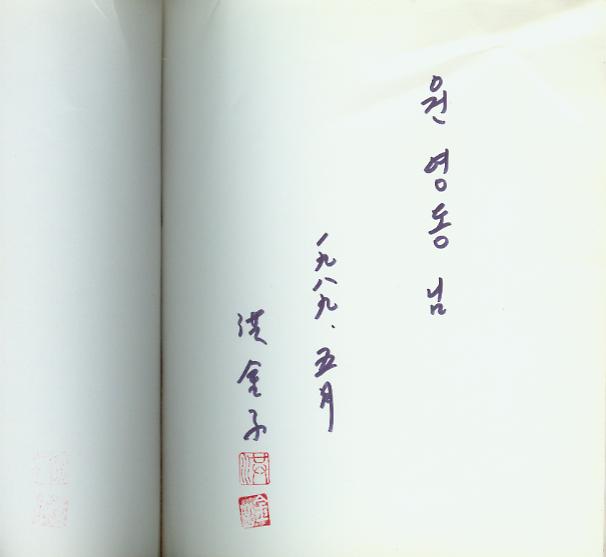 원영동 님
一九八九. 五月
洪金子